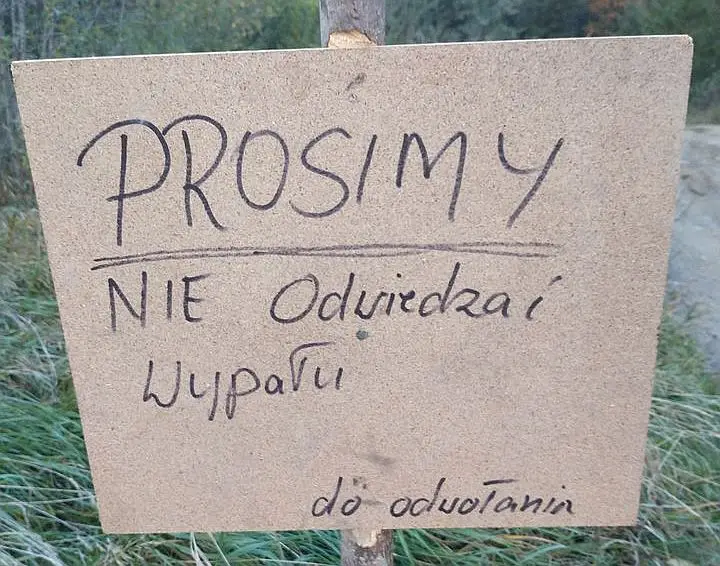 PROSIMY
NIE Odwiedzać
Wypału
do odwołania